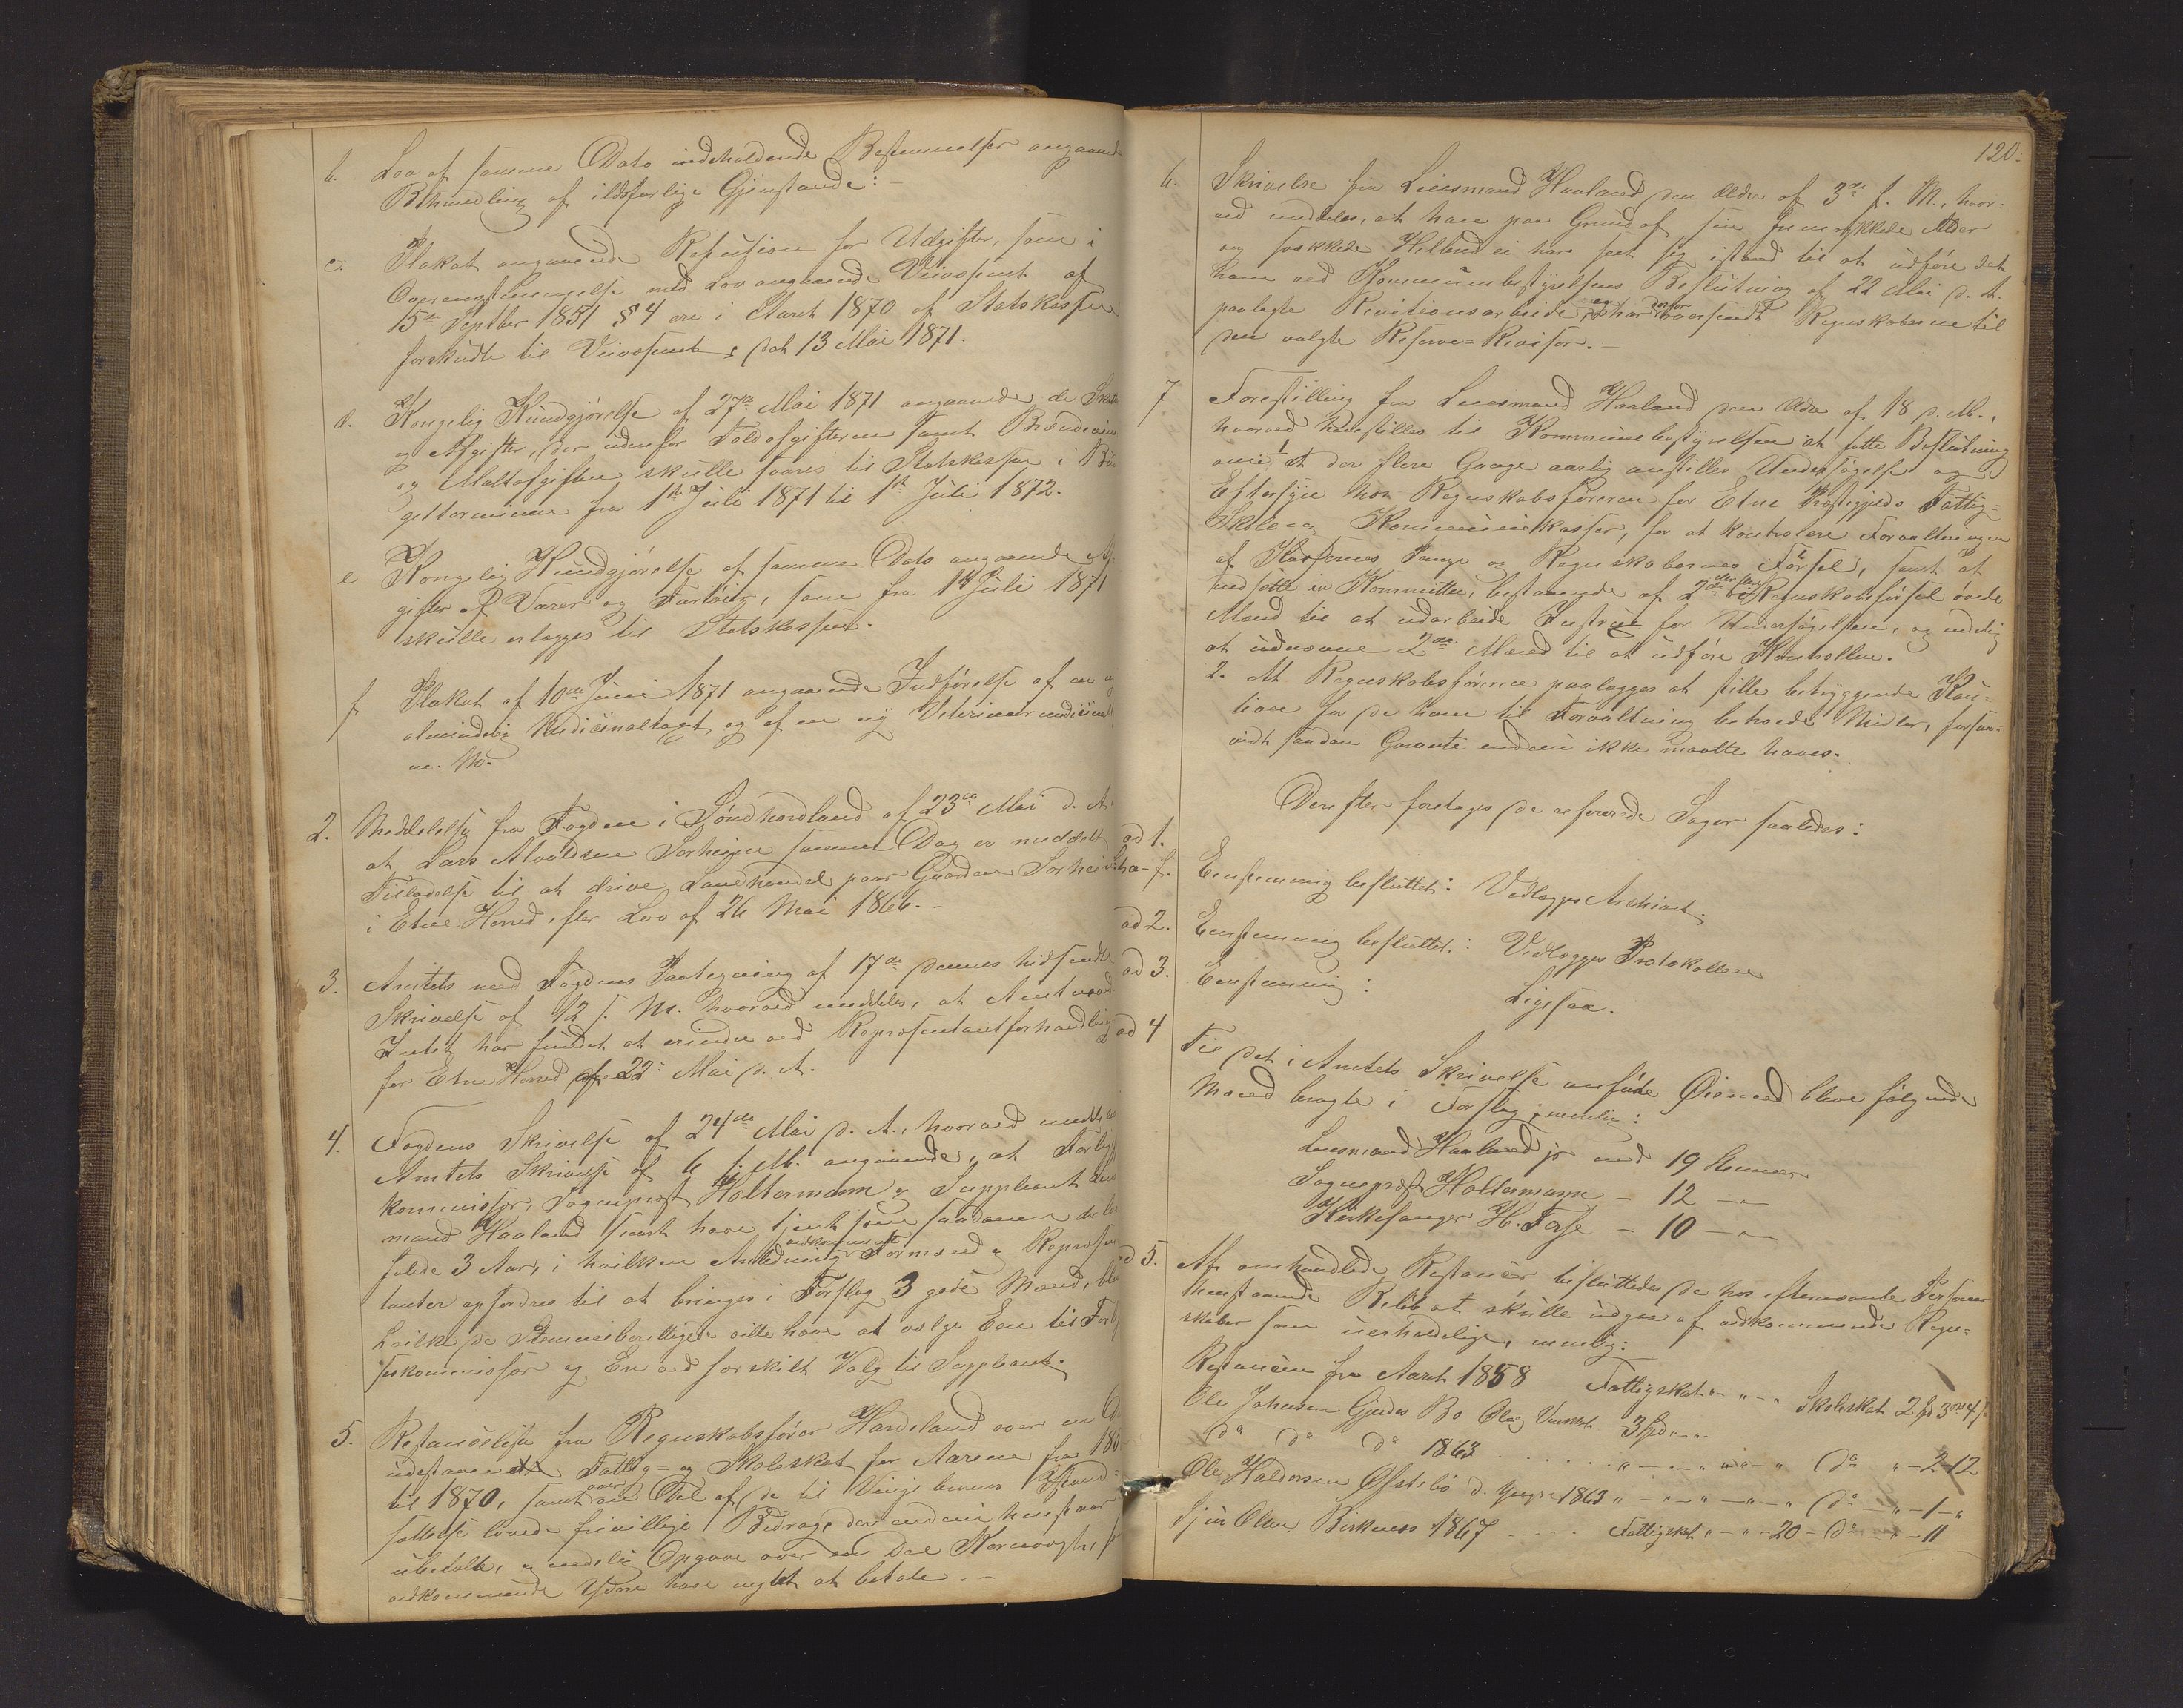 b. Lov af samme Dato indeholdende Bestemmelser angaaende
Behandling af ildsfarlige Gjenstande:-
c. Plakat angaaende Refusion for Udgifter, som i
Overenstemmelse med Lov angaaende Veivæsenet af
15de Septbr 1851 § 4 ere i Aaret 1870 af Statskassen
forskudte til Veivæsenet, dat 13 Mai 1871.
d. Kongelig Kundgjørelse af 27de Mai 1871 angaaende de Skatter
og Afgifter, der udenfor Toldafgifterne samt Brændeviins
og Maltafgiften skulle svares til Statskassen i Bud
getterminen fra 1ste Juli 1871 til 1ste Juli 1872.
e Kongelig Kundgjørelse af samme Dato angaaende Af
gifter af Varer og Fartøier, som fra 1ste Juli 1871
skulle erlægges til Statskassen.
f Plakat af 10de Juni 1871 angaaende Indførelse af en ny
almindelig Medicinaltaxt og af en ny Veterinærmedicinal
m. M.
2. Meddelelse fra Fogden i Søndhordland af 23de Mai d. A.
at Lars Alvaldsen Sørheim samme Dag er meddelt
Tilladelse til at drive Landhandel paa Gaarden Sørheim
i Etne Herred efter Lov af 26 Mai 1866.-
3. Amtets med Fogdens Paategning af 17de dennes hidsendte
Skrivelse af 12 f. M. hvorved meddeles, at Amtmanden
Intet har fundet at erindre ved Repræsentantforhandlinger
for Etne Herred af 22: Mai d. A.
4. Fogdens Skrivelse af 24de Mai d. A., hvorved meddeles
Amtets Skrivelse af 6 f. M. angaaende, at Forligs
kommissær, Sognepræst Holtermann og Suppleant Lens
mand Haaland snart have tjent som saadanne de be
falede 3 Aar, i hvilken Anledning vedkommende Formænd og Repræsen
tanter opfordres til at bringes i Forslag 3 gode Mænd, blandt
hvilke de Stemmeberettigede ville have at vælge Een til Forlig
seskommissær og En ved særskilt Valg til Suppleant.
5. Restanceliste fra Regnskabsfører Hardeland over en Del
udestaaende Fattig- og Skoleskat for Aarene fra 185
til 1870, samt over en Del af de til Veiens Istand-
sættelse lovede frivillige Bidrag, der endnu henstaar
ubetalte, og endelig Opgave over en Deel Kornvægt, som
vedkommende Ydere have negtet at betale.-
120.
6. Skrivelse fra Lensmand Haaland den Ældre af 3die f. M., hvor-
ved meddeles, at han paa Grund af sin fremrykkede Alder
og svækkede Helbred ei har seet sig istand til at udføre det
ham ved Kommunebestyrelsens Beslutning af 22 Mai d. A.
paalagte Revisionsarbeide, og har derfor oversendt Regnskaberne til
den valgte Reserve-Revisor.-
7 Forestilling fra Lensmand Haaland den Ældre af 18 d. M.,
hvorved henstilles til Kommunebestyrelsen at fatte Beslutning
om: 1 At der flere Gange aarlig anstilles Undersøgelse og
Eftersyn hos Regnskabsføreren for Etne Præstegjelds Fattig-
Skole- og Kommunekasser, for at kontrolere Forvaltningen
af Kassernes Penge og Regnskabernes Førsel, samt at
nedsætte en Kommittee, bestaaende af 2de eller flere i Regnskabsførsel øvede
Mænd til at udarbeide Instrux for Undersøgelsen, og endelig
at udnævne 2de Mænd til at udføre Kontrollen.
2. At Regnskabsføreren paalægges at stille betryggende Kau-
tion for de ham til Forvaltning betroede Midler, forsaa-
vidt saadan Garante endnu ikke maatte haves.
Derefter foretages de refererede Sager saaledes:
ad 1.
a-f. Eenstemmig besluttet: Vedlægges Archivet.
ad 2. Eenstemmig besluttet: Vedlægges Protokollen
ad 3. Eenstemmig: Ligesaa.
ad 4 Til det i Amtets Skrivelse anførte Øiemed bleve følgende
Mænd bragte i Forslag, nemlig:
Lensmand Haaland jr med 19 Stemmer
Sognepræst Holtermann - 12 -"-
Kirkesanger H. Forse - 10 -"-
ad 5. Af omhandlede Restancer besluttedes de hos efternævnte Personer
henstaaende Beløb at skulle udgaa af vedkommende Regn-
skaber som uerholdelige, nemlig:
Restancen fra Aaret 1858 Fattigskat " - " - " Skoleskat 2 sp 3 ort 4 s
Ole Johansen Gjerdes Bo 3 sp - " - "
do do do 1863 . . . . . . " - " - " do " - 2 - 12
Ole Haldorsen Østebø 1863 " - " - " do - " - 1 - "
Sjur Olsen Birkenes 1867 . . . . . Fattigskat " - " - 20 - do - " - 11